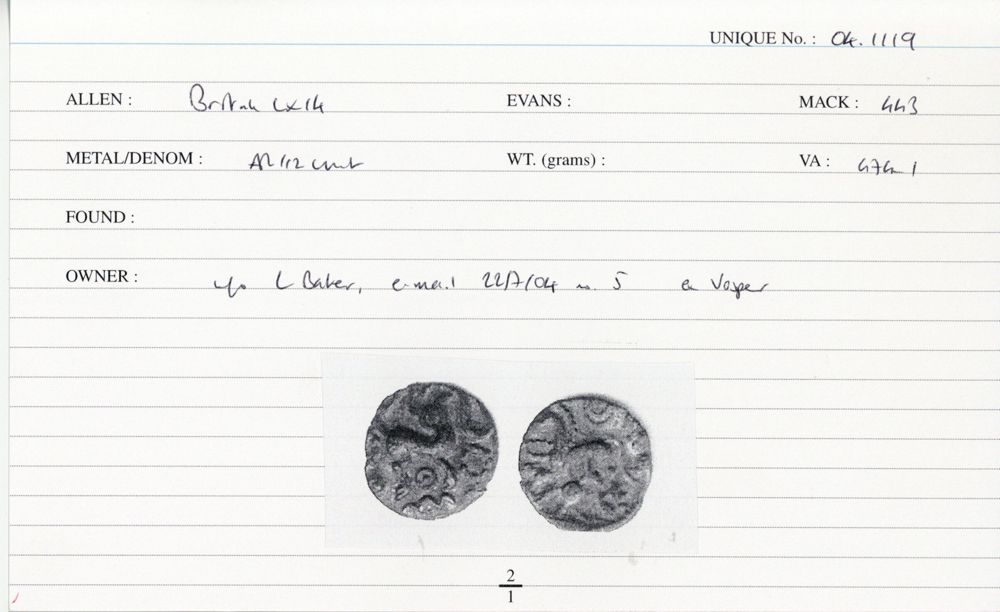 UNIQUE No. : 04.1119
ALLEN : British LX14 EVANS : MACK : 443
METAL/DENOM : AR 1/2 unit WT. (grams) : VA : 474-1
FOUND :
OWNER : L Baker, e-mail 22/7/04 no. 5 ex Vosper
2
1